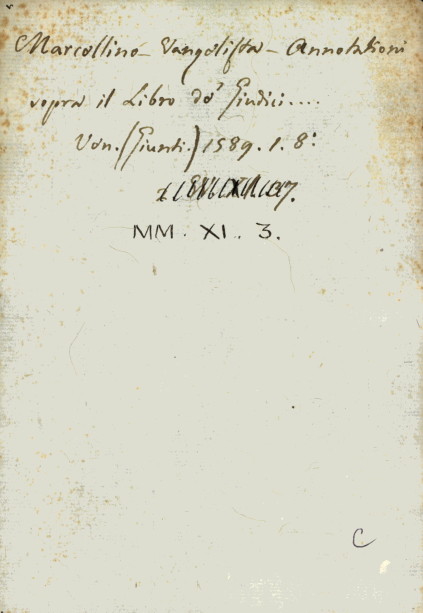 Marcellino Vangelista - Annotationi
sopra il Libro de' Giudici....
Ven. (Giunti.) 1589. 1. 8:
MM. XI. 3.
C